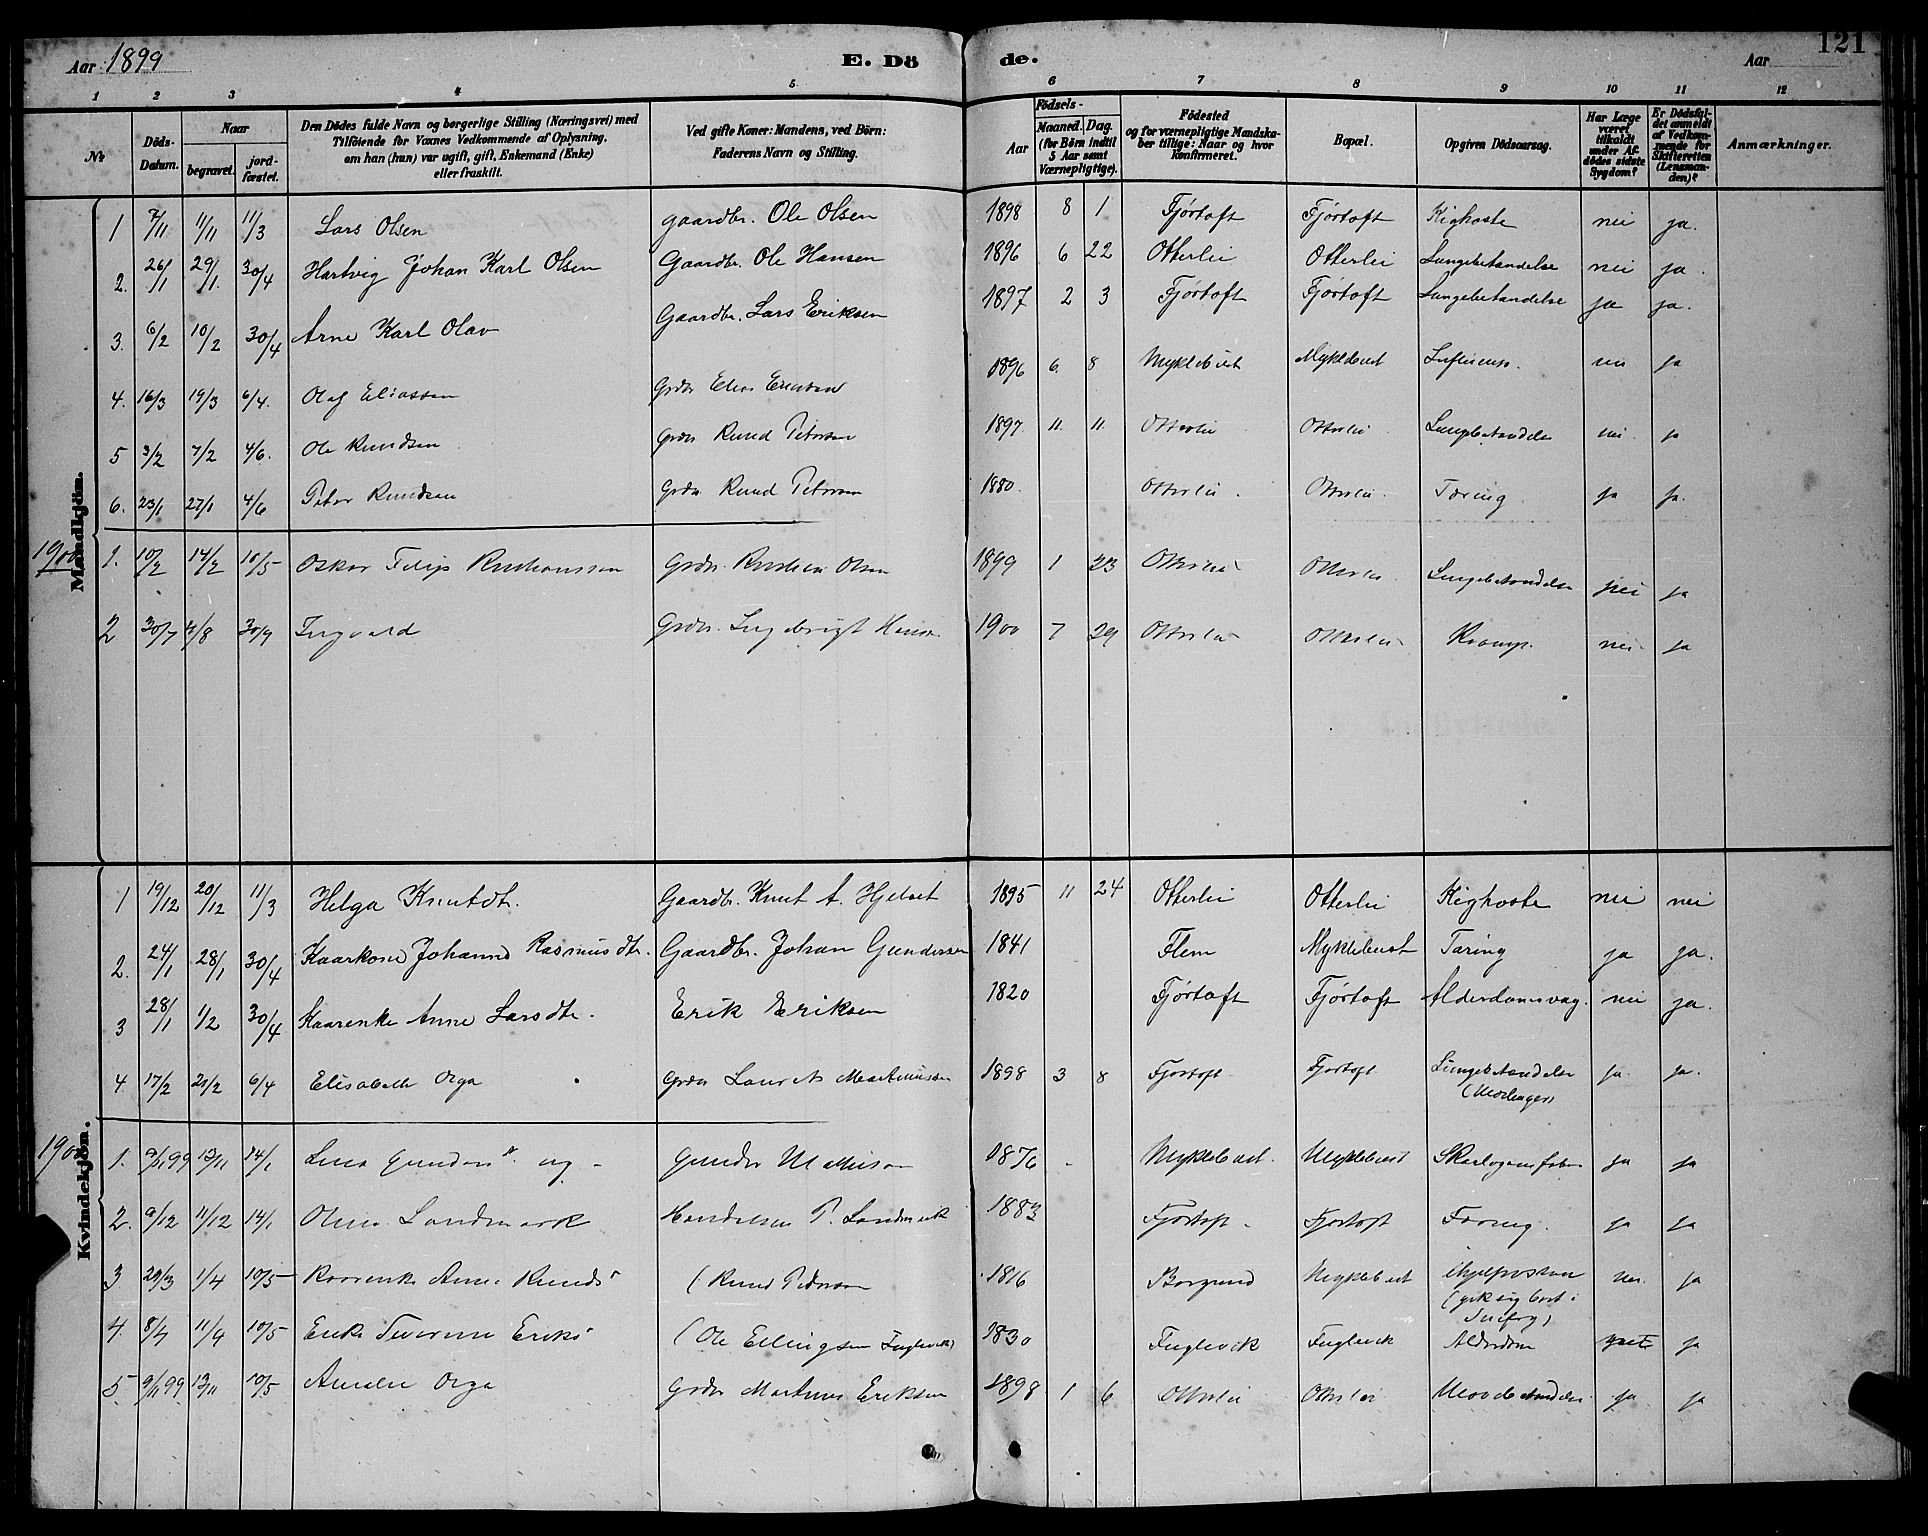 121
Aar 1899 E. Dö de. Aar
1 2 3 4 5 6 7 8 9 10 11 12
No
Döds-Datum.
Naar
begravet.
jord-fæstet.
Den Dödes fulde Navn og borgerlige Stilling (Næringsvei) med
Tilföiende for Voxnes Vedkommende af Oplysning,
om han (hun) var ugift, gift, Enkemand (Enke)
eller fraskilt.
Ved gifte Koner: Mandens, ved Börn:
Faderens Navn og Stilling.
Födsels-
Aar
Maaned. Dag.
(for Börn indtil
5 Aar samt
Værnepligtige).
Födested
og for værnepligtige Mandska-
ber tillige: Naar og hvor
Konfirmeret.
Bopæl.
Opgiven Dödsaarsag.
Har Læge
været
tilkaldt
under Af-
dödes sidste
Sygdom?
Er Dödsfal-
det anmeldt
af Vedkom-
mende for
Skifteretten
(Lensman-
den)?
Anmærkninger.
Mandkjön.
1 7/11 11/11 11/3 Lars Olsen gaardbr. Ole Olsen 1898 8 1 Fjörtoft Fjörtoft Kighoste nei ja.
2. 26/1 29/1 30/4 Hartvig Johan Karl Olsen Gaardbr. Ole Hansen 1896 6 22 Otterlei Otterlei Lungebetændelse nei ja.
3. 6/2 10/2 30/4 Arne Karl Olav Gaardbr. Lars Eriksen 1897 2 3 Fjörtoft Fjörtoft Lungebetændelse ja ja.
4. 16/3 19/3 6/4. Olaf Eliassen Grdbr Elias 1896 6. 8 Myklebust Myklebust nei ja
5 3/2 7/2 4/6. Ole Knudsen Grdbr Knud Petersen 1897 11. 11. Otterlei Otterlei Lungebetændelse nei. ja
6. 23/1 27/1 4/6 Peter Knudsen Grdbr Knud Petersen 1880. Otterlei. Otterlei Tæring ja ja.
1900
1. 10/2 14/2 10/5 Oskar Filip Grdbr. Olsen 1899 1 23 Otterlei Otterlei Lungebetændelse nei ja
2 30/7 4/8 30/9 Ingvald Grdbr. Ingebrigt Hansen 1900 7 29 Otterlei Otterlei Krampe. nei ja
Kvindekjön.
1 19/12 20/12 11/3 Helga Knutdt. Gaardbr. Knut A. Hjelset 1895 11 24 Otterlei Otterlei Kighoste nei nei
2. 24/1 28/1 30/4 Kaarkone Johanne Rasmusdtr. Gaardbr. Johan Gundersen 1841 Flem Myklebust Tæring ja ja.
3 28/1 1/2 30/4 Kaarenke Anne Larsdtr. Erik Eriksen 1820 Fjörtoft Fjörtoft Alderdomsvag. nei ja.
4. 17/2 21/2 6/4 Elisabeth Olga Grdbr Laurits Martinussen 1898 3 8 Fjortoft Fjortoft Lungebetændelse ja ja.
1900
1. 9/11 99 13/11 14/1 Lina ug Gunder Mathiesen 1876 Myklebust. Myklebust Skarlagensfeber ja ja
2. 9/12 11/12 14/1 Oline Landmark P. Landmark 1883 Fjortoft Fjortoft Tæring. ja ja
3 29/3 1/4 10/5 Kaarenke Anne Knudsd (Knud Pedersen 1816 Borgund Myklebust nei. ja
4. 8/4 11/4 10/5 Enke Eriksd (Ole Ellingsen Fuglevik) 1830 Fuglevik Fuglevik Alderdom ja
5. 9/11 99 13/11 10/5 Amalie Olga Grdbr Martinus Eriksen 1898 1 6 Otterlei Otterlei ja ja